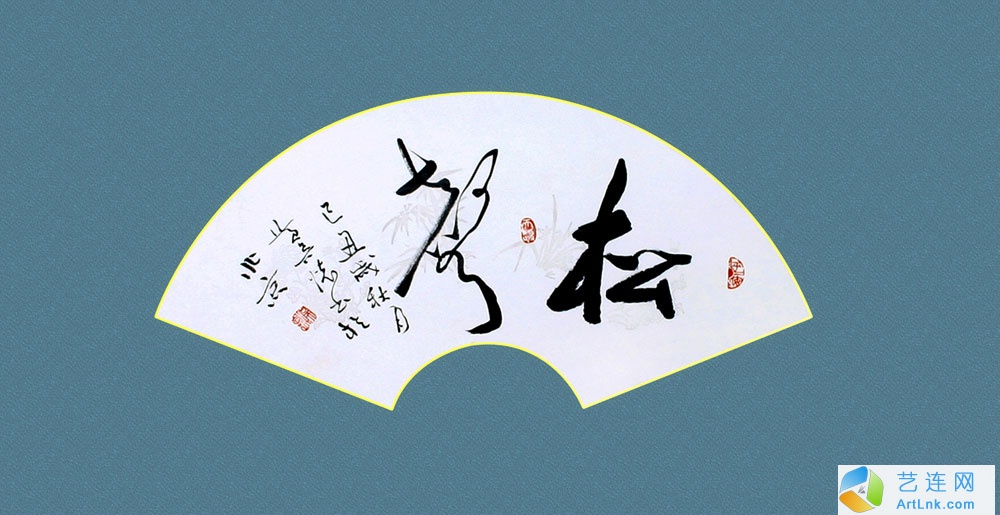 松聲
己丑歲秋月
书於
北京
艺连网
ArtLnk.com